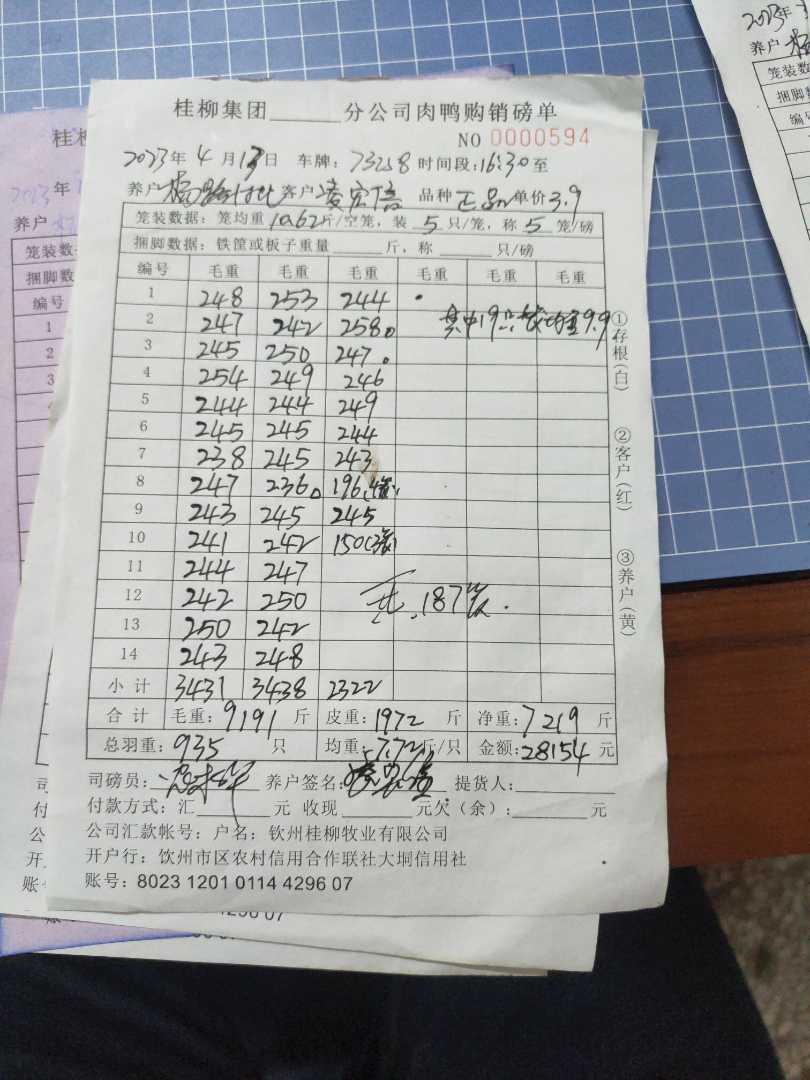 桂柳集团______分公司肉鸭购销磅单
NO 0000594
2023年 4 月 13 日 车牌: 73258 时间段: 16:30 至
养户 杨 客户 凌宏信 品种 正品 单价 3.9
笼装数据: 笼均重 10.62 斤/空笼, 装 5 只/笼, 称 5 笼/磅
捆脚数据: 铁筐或板子重量______斤, 称______只/磅
编号 毛重 毛重 毛重 毛重 毛重 毛重
1 248 253 244
2 247 242 258 其中19只 均重9.9
3 245 250 247
4 254 249 246
5 244 244 249
6 245 245 244
7 238 245 243
8 247 236 196
9 243 245 245
10 241 242 150
11 244 247
12 242 250 187
13 250 242
14 243 248
小计 3431 3438 2322
合计 毛重: 9191 斤 皮重: 1972 斤 净重: 7219 斤
总羽重: 935 只 均重: 7.72 斤/只 金额: 28154 元
司磅员: 养户签名: 提货人:
付款方式: 汇______元 收现______元欠(余): ______元
公司汇款帐号: 户名: 钦州桂柳牧业有限公司
开户行: 饮州市区农村信用合作联社大垌信用社
账号: 8023 1201 0114 4296 07
①存根(白)
②客户(红)
③养户(黄)
桂柳
2023 年
养户
笼装数
捆脚数据
编号
1
2
3
2023年
养户 杨
笼装数
捆脚数
编号